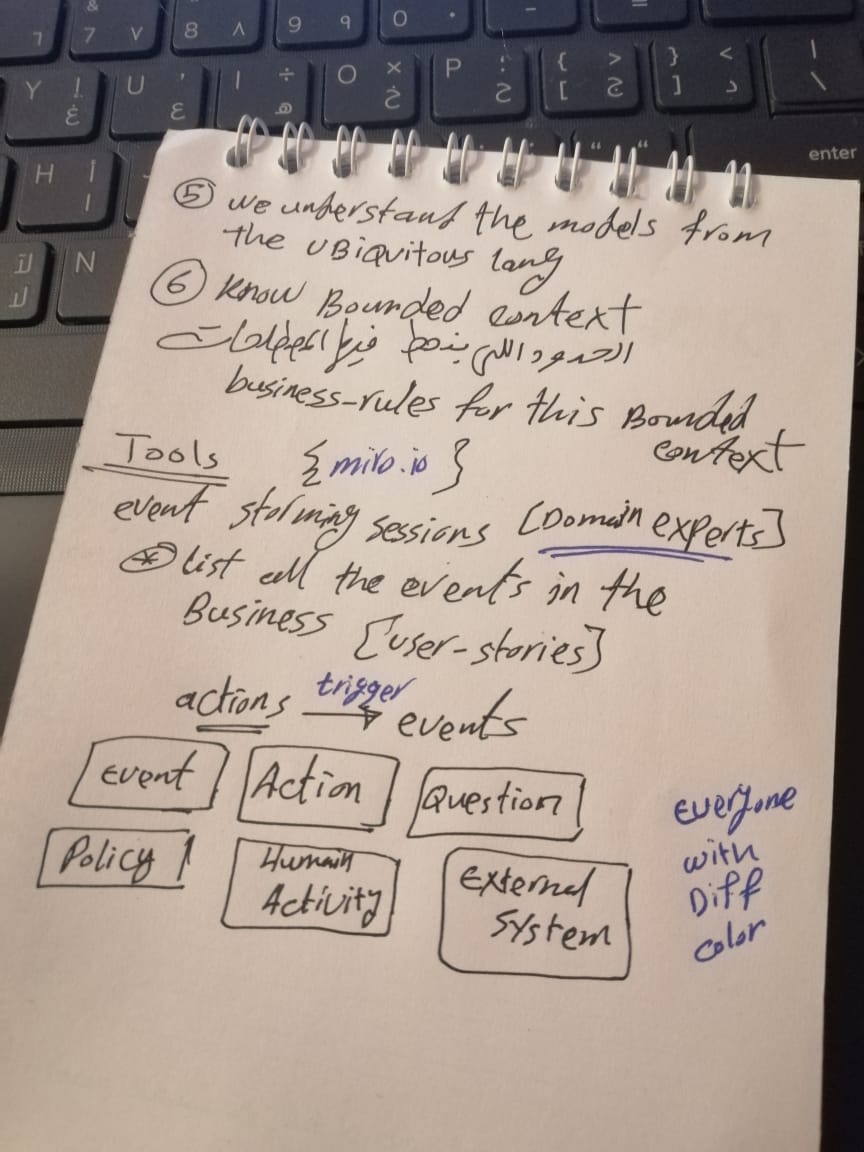 ⑤ we understand the models from
the UBiquitous lang
⑥ Know Bounded context
الحدود اللي بنحط فيها
business-rules for this Bounded
context
Tools {miro.io}
event storming sessions [Domain experts]
* list all the events in the
Business [user-stories]
actions trigger → events
Event Action Question
Policy Human Activity External System
everyone
with
Diff
color